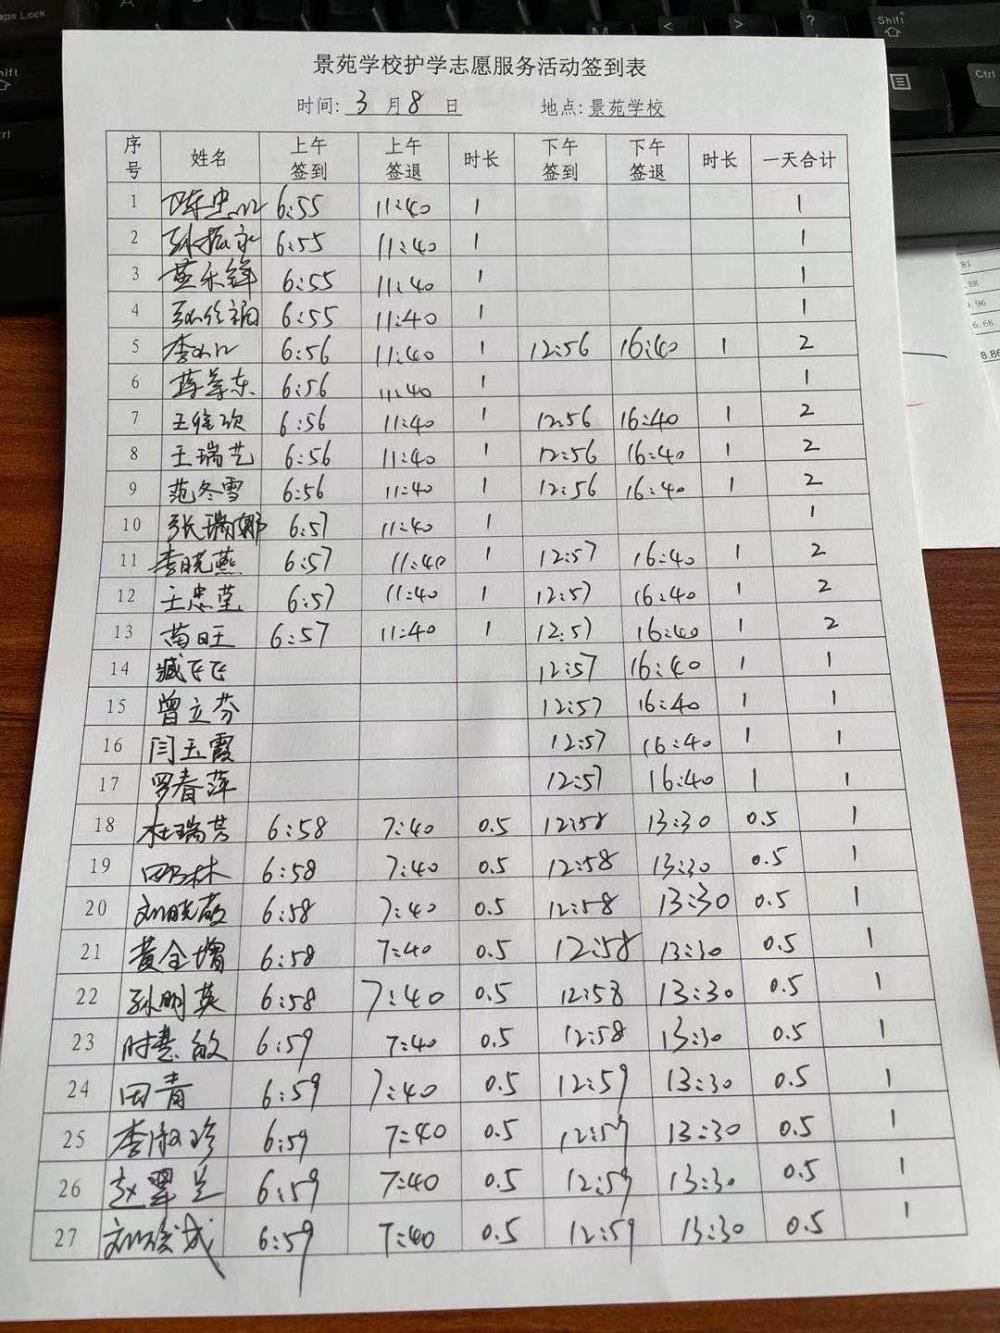 景苑学校护学志愿服务活动签到表
时间: 3 月 8 日 地点: 景苑学校
序号 姓名 上午签到 上午签退 时长 下午签到 下午签退 时长 一天合计
1 陈忠 6:55 11:40 1 1
2 孙振永 6:55 11:40 1 1
3 6:55 11:40 1 1
4 6:55 11:40 1 1
5 李 6:56 11:40 1 12:56 16:40 1 2
6 6:56 11:40 1 1
7 王 6:56 11:40 1 12:56 16:40 1 2
8 王瑞艺 6:56 11:40 1 12:56 16:40 1 2
9 范冬雪 6:56 11:40 1 12:56 16:40 1 2
10 张瑞娜 6:57 11:40 1 1
11 李晓燕 6:57 11:40 1 12:57 16:40 1 2
12 王忠莹 6:57 11:40 1 12:57 16:40 1 2
13 苗旺 6:57 11:40 1 12:57 16:40 1 2
14 臧飞飞 12:57 16:40 1 1
15 曾立芬 12:57 16:40 1 1
16 闫玉霞 12:57 16:40 1 1
17 罗春萍 12:57 16:40 1 1
18 杜瑞芳 6:58 7:40 0.5 12:58 13:30 0.5 1
19 林 6:58 7:40 0.5 12:58 13:30 0.5 1
20 刘晓 6:58 7:40 0.5 12:58 13:30 0.5 1
21 黄金增 6:58 7:40 0.5 12:58 13:30 0.5 1
22 孙明英 6:58 7:40 0.5 12:58 13:30 0.5 1
23 时慧敏 6:59 7:40 0.5 12:58 13:30 0.5 1
24 田青 6:59 7:40 0.5 12:59 13:30 0.5 1
25 李淑珍 6:59 7:40 0.5 12:59 13:30 0.5 1
26 赵翠兰 6:59 7:40 0.5 12:59 13:30 0.5 1
27 刘 成 6:59 7:40 0.5 12:59 13:30 0.5 1